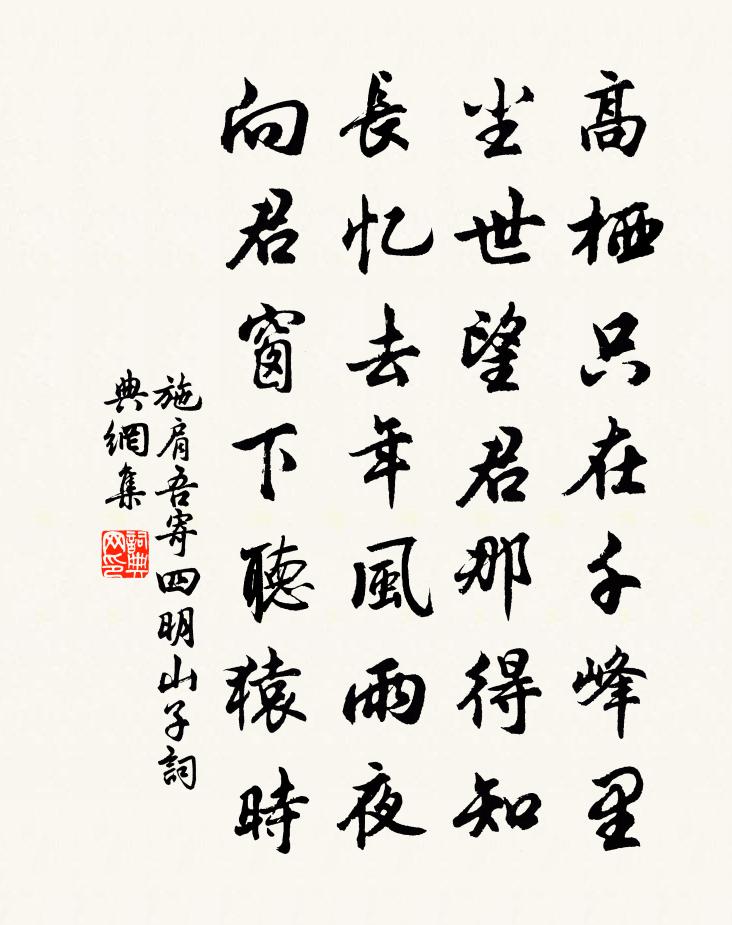 高栖只在千峰里
尘世望君那得知
長忆去年風雨夜
向君窗下聽猿時
施肩吾寄四明山子詞
典網集
詞典网印